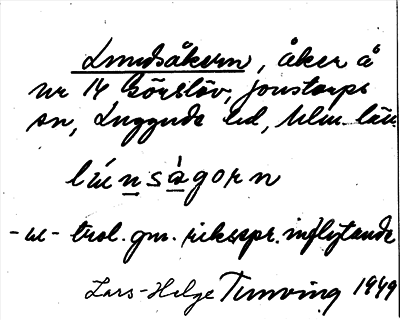 Lundsåkern, åker å
nr 14 Görslöv, Jonstorps
sn, Luggude hd, Mlm. län
lúnsàgorn
-u- trol. gm. riksspr. inflytande
Lars-Helge Tunving 1949